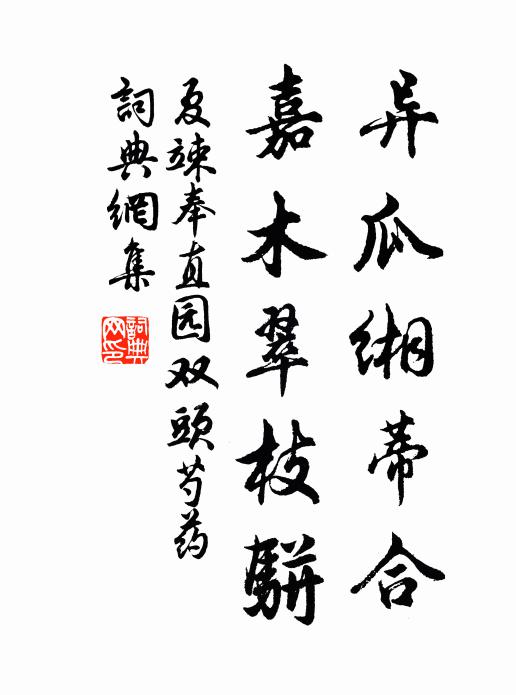 异瓜缃蒂合
嘉木翠枝骈
夏竦奉直园双頭芍药
詞典網集
詞典网印